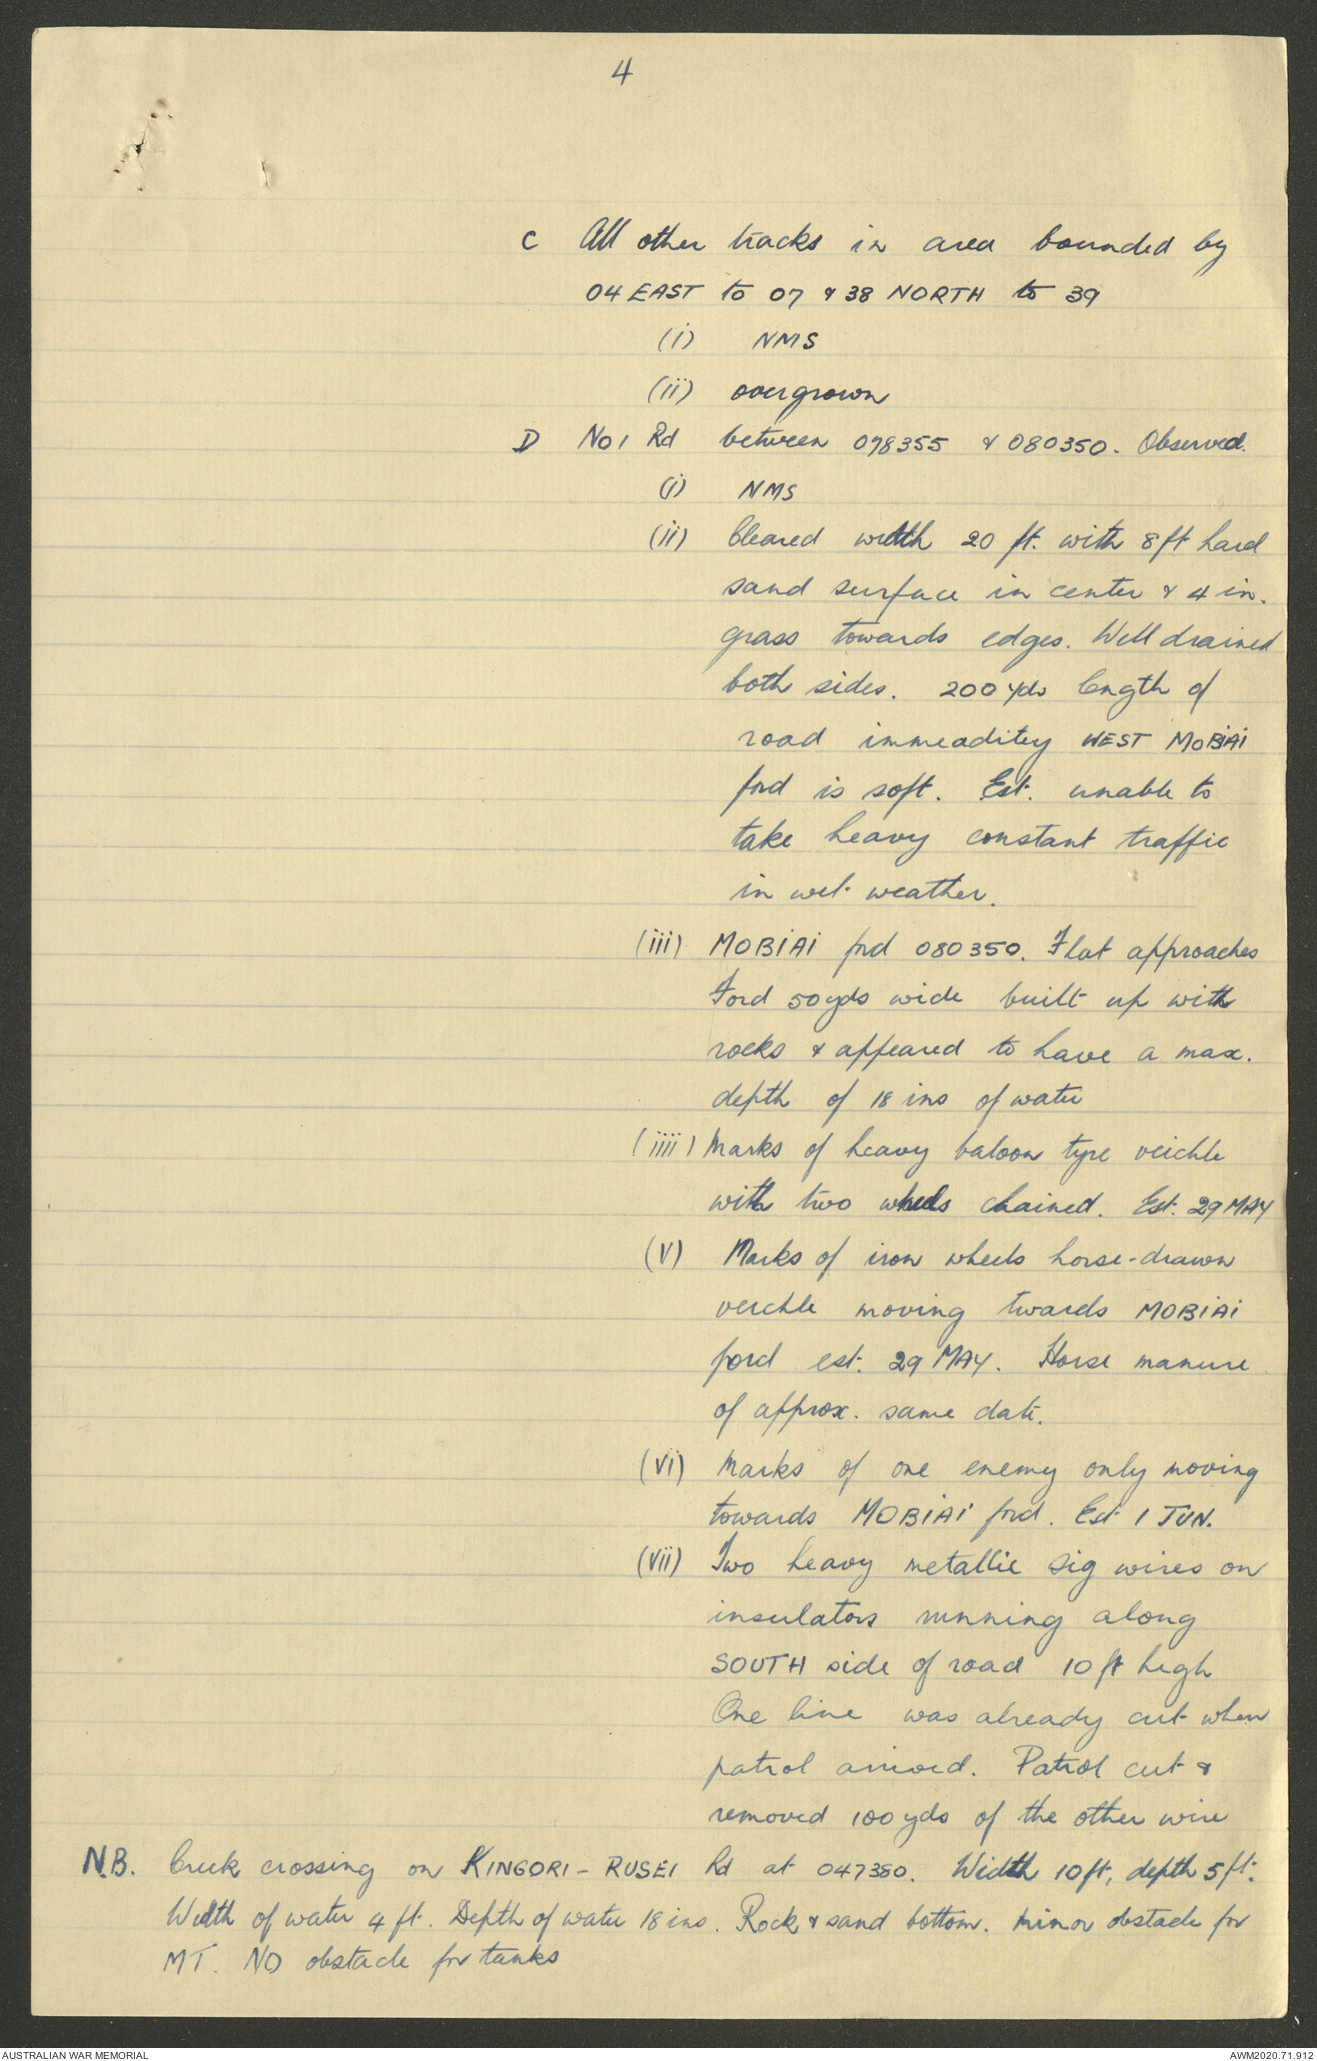 4
C All other tracks in area bounded by
04 EAST to 07 & 38 NORTH to 39
(i) NMS
(ii) overgrown
D No 1 Rd between 078355 & 080350. Observed.
(i) NMS
(ii) Cleared width 20 ft. with 8 ft hard
sand surface in center & 4 in.
grass towards edges. Well drained
both sides. 200 yds length of
road immeaditey WEST MOBIAI
ford is soft. Est. unable to
take heavy constant traffic
in wet weather.
(iii) MOBIAI ford 080350. Flat approaches
Ford 50 yds wide built up with
rocks & appeared to have a max.
depth of 18 ins of water
(iiii) Marks of heavy baloon tyre veichle
with two wheels chained. Est. 29 MAY
(V) Marks of iron wheels horse-drawn
veichle moving twards MOBIAI
ford est. 29 MAY. Horse manure
of approx. same date.
(VI) Marks of one enemy only moving
towards MOBIAI ford. Est 1 JUN.
(VII) Two heavy metallic sig wires on
insulators running along
SOUTH side of road 10 ft high
One line was already cut when
patrol arrived. Patrol cut &
removed 100 yds of the other wire
N.B. Creek crossing on KINGORI - RUSEI Rd at 047380. Width 10 ft, depth 5 ft.
Width of water 4 ft. Depth of water 18 ins. Rock & sand bottom. Minor obstacle for
MT. NO obstacle for tanks
AUSTRALIAN WAR MEMORIAL
AWM2020.71.912